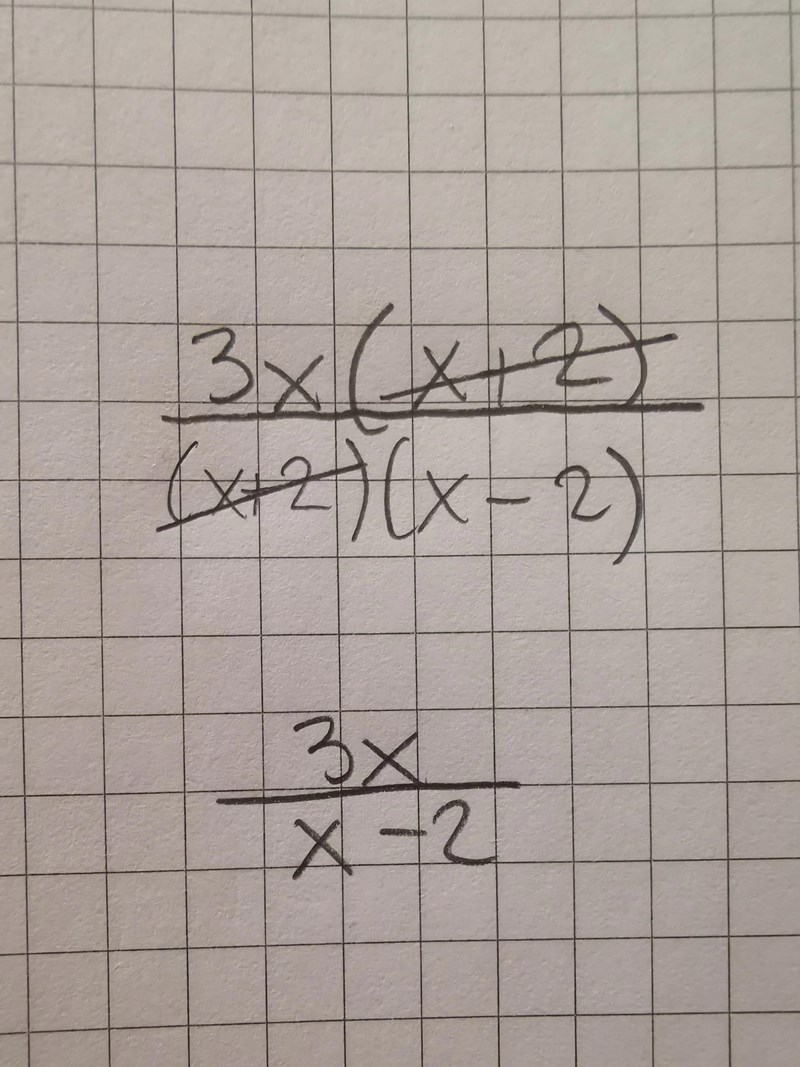 3x(x+2)
(x+2)(x-2)
3x
x-2